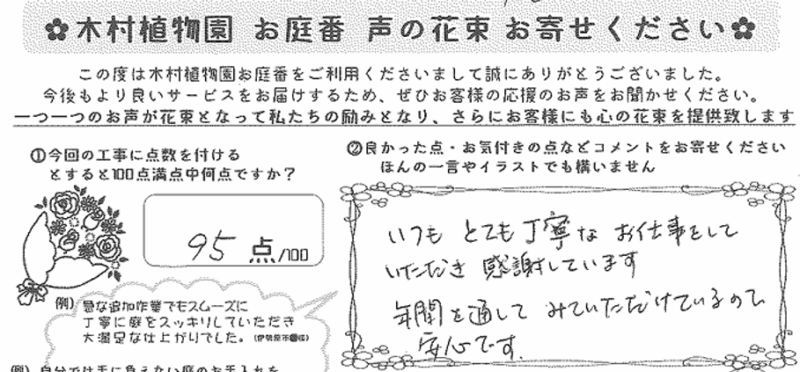 ✿木村植物園 お庭番 声の花束 お寄せください✿
この度は木村植物園お庭番をご利用くださいまして誠にありがとうございました。
今後もより良いサービスをお届けするため、ぜひお客様の応援のお声をお聞かせください。
一つ一つのお声が花束となって私たちの励みとなり、さらにお客様にも心の花束を提供致します
①今回の工事に点数を付ける
とすると100点満点中何点ですか？
95 点/100
例）急な追加作業でもスムーズに
丁寧に庭をスッキリしていただき
大満足な仕上がりでした。(伊勢原市 様)
例）自分では手に負えない庭のお手入れを
②良かった点・お気付きの点などコメントをお寄せください
ほんの一言やイラストでも構いません
いつも とても丁寧な お仕事をして
いただき 感謝しています
年間を通して みていただけているので
安心です.